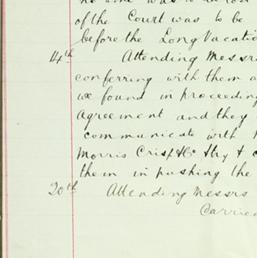 of the Court was to be
before the Long Vacatio
14th Attending Messrs
conferring with them a
we found in proceeding
agreement and they
communicate with
Morris Crisp & Co try & c
them in pushing the
20th Attending Messrs
Carried